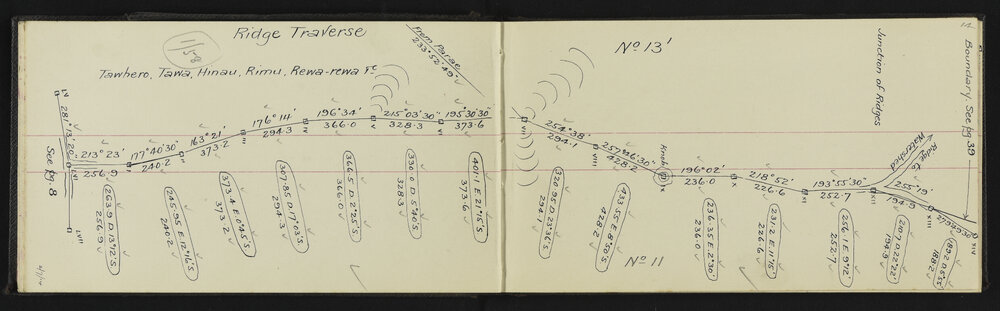 Ridge Traverse
11/52
Tawhero, Tawa, Hinau, Rimu, Rewa-rewa &c
from Parae
233°52'49"
No 13'
Junction of Ridges
14
Boundary See pg 39
Ridge to Watershed
LV
281°13'20"
See pg. 8
LVI
LVII
213°23'
256.9
I
177°40'30"
240.2
II
163°21'
373.2
III
176°14'
294.3
IV
196°34'
366.0
V
215°03'30"
328.3
VI
195°30'30"
373.6
254°38'
294.1
VIII
257°46'30"
428.2
Knob
IX
196°02'
236.0
X
218°52'
226.6
XI
193°55'30"
252.7
XII
255°19'
194.9
XIII
XIV
263.9 D 13°12'S
256.9
245.95 E 12°16'S
240.2
373.4 E 0°45'S
373.2
307.85 D 17°03'S
294.3
366.5 D 2°25'S
366.0
330.0 D 5°40'S
328.3
401.1 E 21°15'S
373.6
320.95 D 23°36'S
294.1
433.55 E 8°50'S
428.2
236.35 E 2°30'
236.0
231.2 E 11°15'
226.6
256.1 E 9°12'
252.7
207 D 22°22'
194.9
188.2
No 11